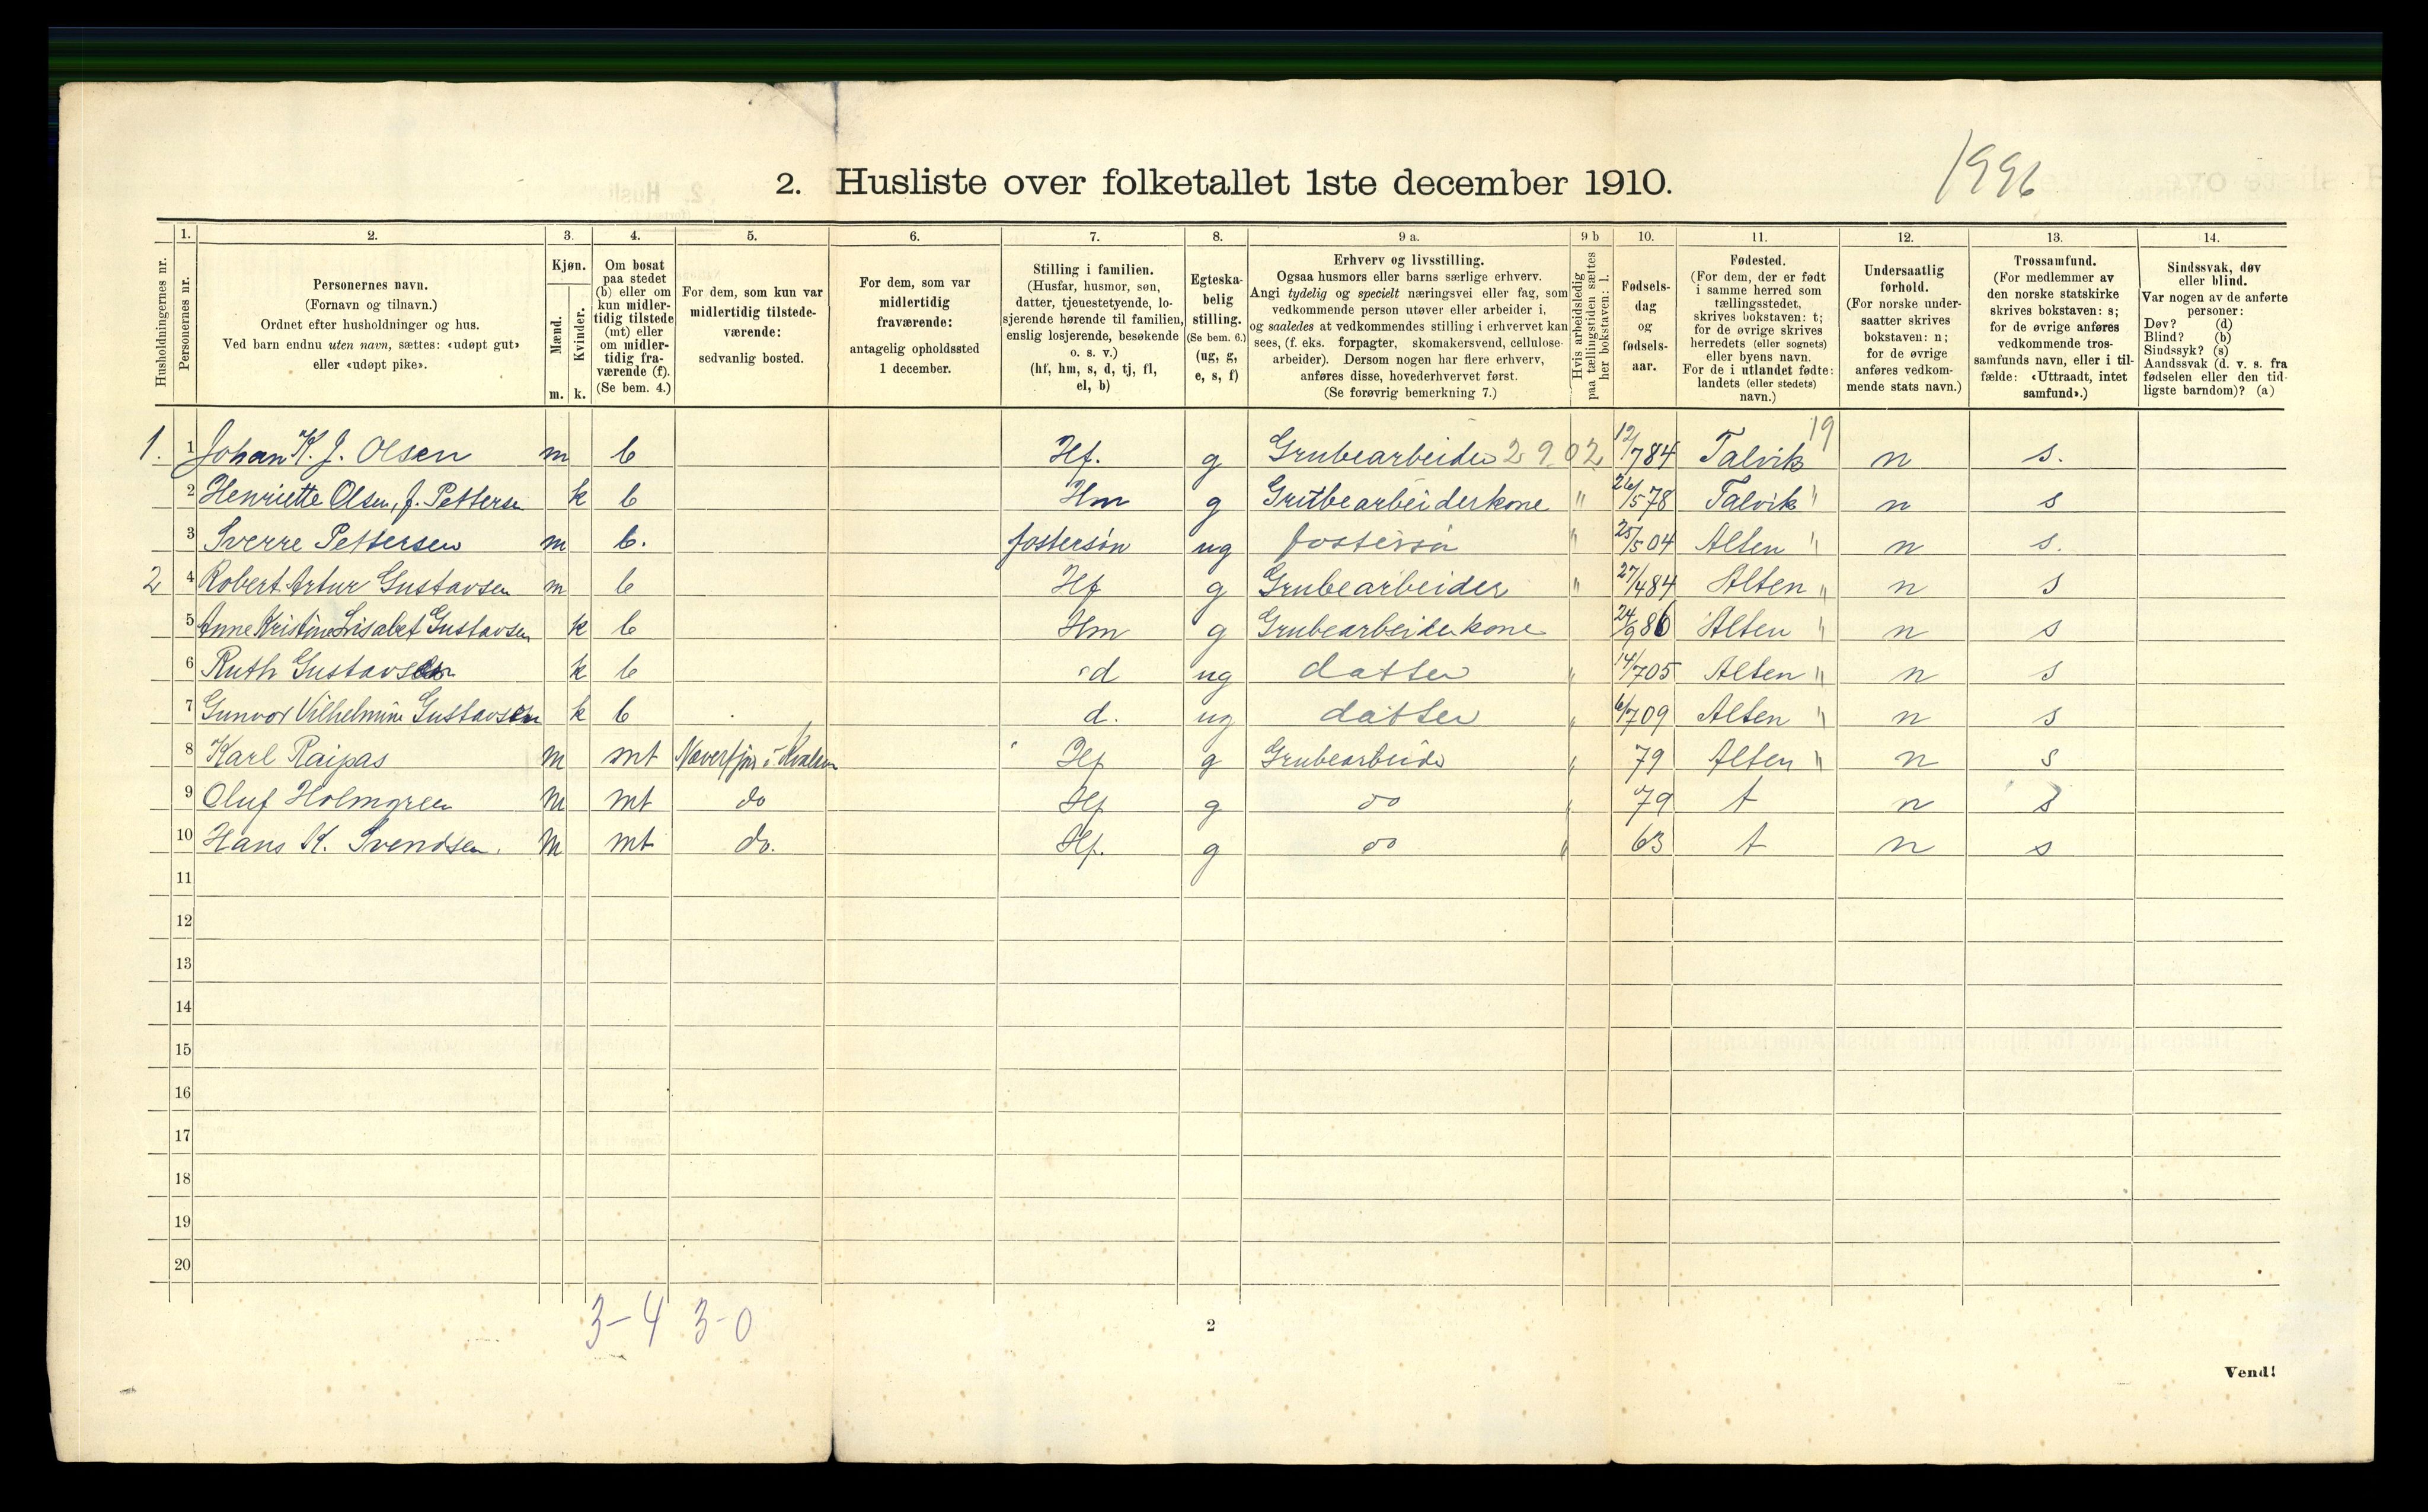 2. Husliste over folketallet 1ste december 1910.
1996
Husholdningernes nr.
1.
Personernes nr.
2.
Personernes navn.
(Fornavn og tilnavn.)
Ordnet efter husholdninger og hus.
Ved barn endnu uten navn, sættes: «udøpt gut»
eller «udøpt pike».
3.
Kjøn.
Mænd.
Kvinder.
m. k.
4.
Om bosat
paa stedet
(b) eller om
kun midler-
tidig tilstede
(mt) eller
om midler-
tidig fra-
værende (f).
(Se bem. 4.)
5.
For dem, som kun var
midlertidig tilstede-
værende:
sedvanlig bosted.
6.
For dem, som var
midlertidig
fraværende:
antagelig opholdssted
1 december.
7.
Stilling i familien.
(Husfar, husmor, søn,
datter, tjenestetyende, lo-
sjerende hørende til familien,
enslig losjerende, besøkende
o. s. v.)
(hf, hm, s, d, tj, fl,
el, b)
8.
Egteska-
belig
stilling.
(Se bem. 6.)
(ug, g,
e, s, f)
9 a.
Erhverv og livsstilling.
Ogsaa husmors eller barns særlige erhverv.
Angi tydelig og specielt næringsvei eller fag, som
vedkommende person utøver eller arbeider i,
og saaledes at vedkommendes stilling i erhvervet kan
sees, (f. eks. forpagter, skomakersvend, cellulose-
arbeider). Dersom nogen har flere erhverv,
anføres disse, hovederhvervet først.
(Se forøvrig bemerkning 7.)
9 b
Hvis arbeidsledig
paa tællingstiden sættes
her bokstaven: l.
10.
Fødsels-
dag
og
fødsels-
aar.
11.
Fødested.
(For dem, der er født
i samme herred som
tællingsstedet,
skrives bokstaven: t;
for de øvrige skrives
herredets (eller sognets)
eller byens navn.
For de i utlandet fødte:
landets (eller stedets)
navn.)
12.
Undersaatlig
forhold.
(For norske under-
saatter skrives
bokstaven: n;
for de øvrige
anføres vedkom-
mende stats navn.)
13.
Trossamfund.
(For medlemmer av
den norske statskirke
skrives bokstaven: s;
for de øvrige anføres
vedkommende tros-
samfunds navn, eller i til-
fælde: «Uttraadt, intet
samfund».)
14.
Sindssvak, døv
eller blind.
Var nogen av de anførte
personer:
Døv? (d)
Blind? (b)
Sindssyk? (s)
Aandssvak (d. v. s. fra
fødselen eller den tid-
ligste barndom)? (a)
1. 1 Johan K. J. Olsen m b Hf. g Grubearbeider 2902 12/7 84 Talvik 19 n s.
2 Henriette Olsen, f. Pettersen k b Hm g Grubearbeiderkone " 26/5 78 Talvik " n s
3 Sverre Pettersen m b. fostersøn ug fostersøn " 25/5 04 Alten " n s.
2 4 Robert Artur Gustavsen m b Hf g Grubearbeider " 27/4 84 Alten " n s
5 Anne Kristine Lisabet Gustavsen k b Hm g Grubearbeiderkone 24/9 86 Alten " n s
6 Ruth Gustavsen k b d ug datter " 14/7 05 Alten " n s
7 Gunvor Vilhelmine Gustavsen k b d. ug datter " 6/7 09 Alten " n s
8 Karl Raipas m mt Neverfjor i Kvalsun Hf g Grubearbeider " 79 Alten " n s
9 Oluf Holmgren m mt do Hf g do " 79 t n s
10 Hans K. Svendsen. m mt do. Hf. g do " 63 t n s
11
12
13
14
15
16
17
18
19
20
3-4 3-0
2
Vend!